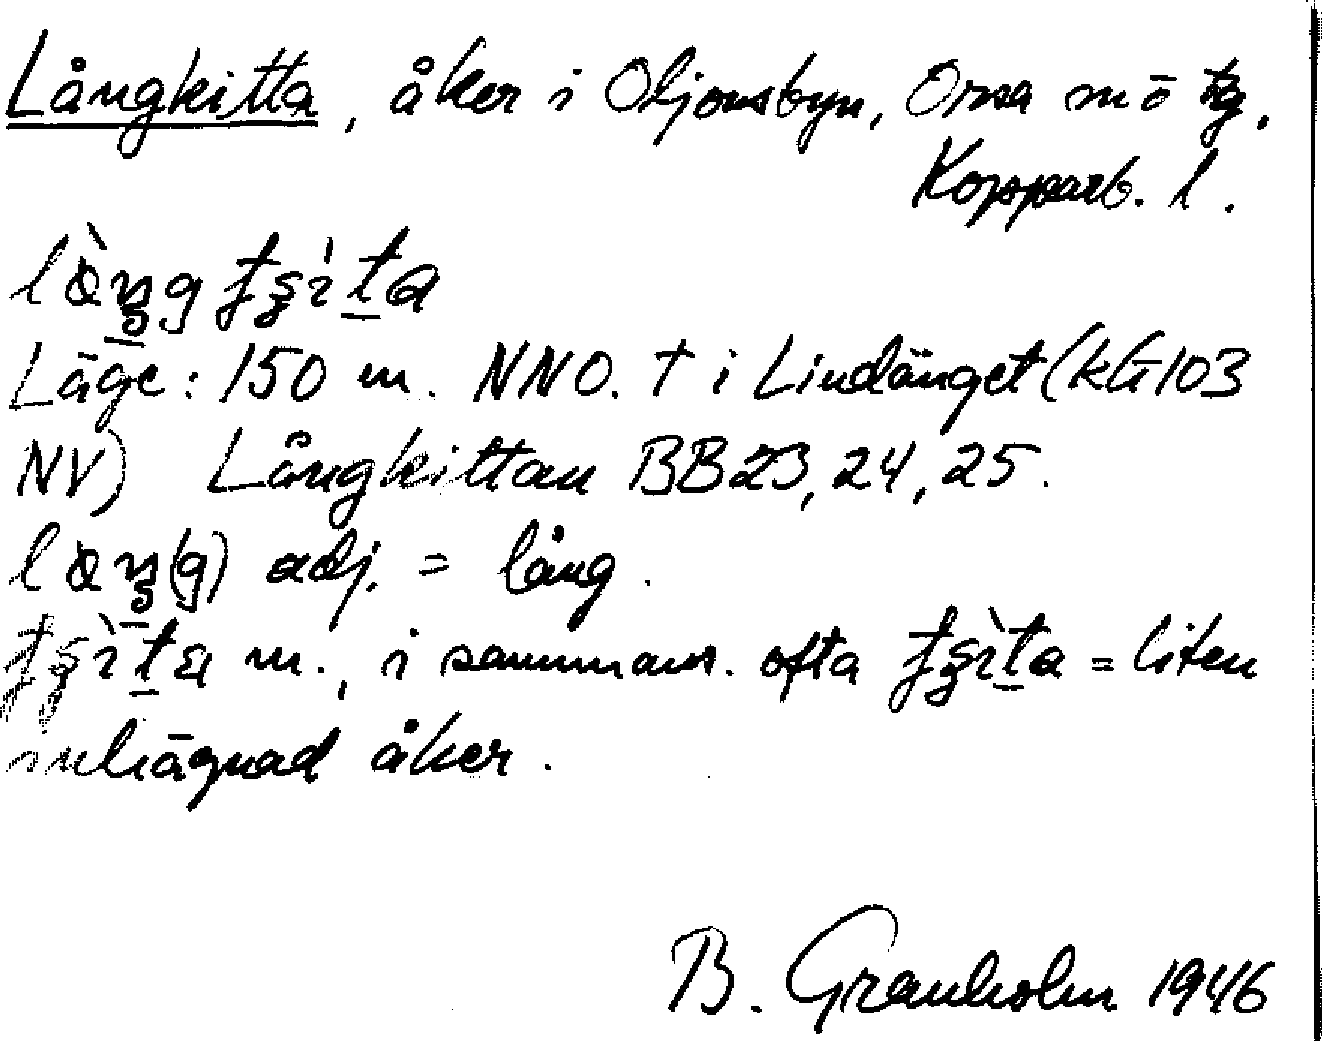 Långkitta, åker i Oljonsbyn, Orsa m ö tg,
Kopparb. l.
Läge: 150 m. NNO. † i Lindänget (kG103
NV) Långkittan BB23, 24, 25.
adj. = lång.
m., i sammans. ofta = liten
inhägnad åker.
B. Granholm 1946